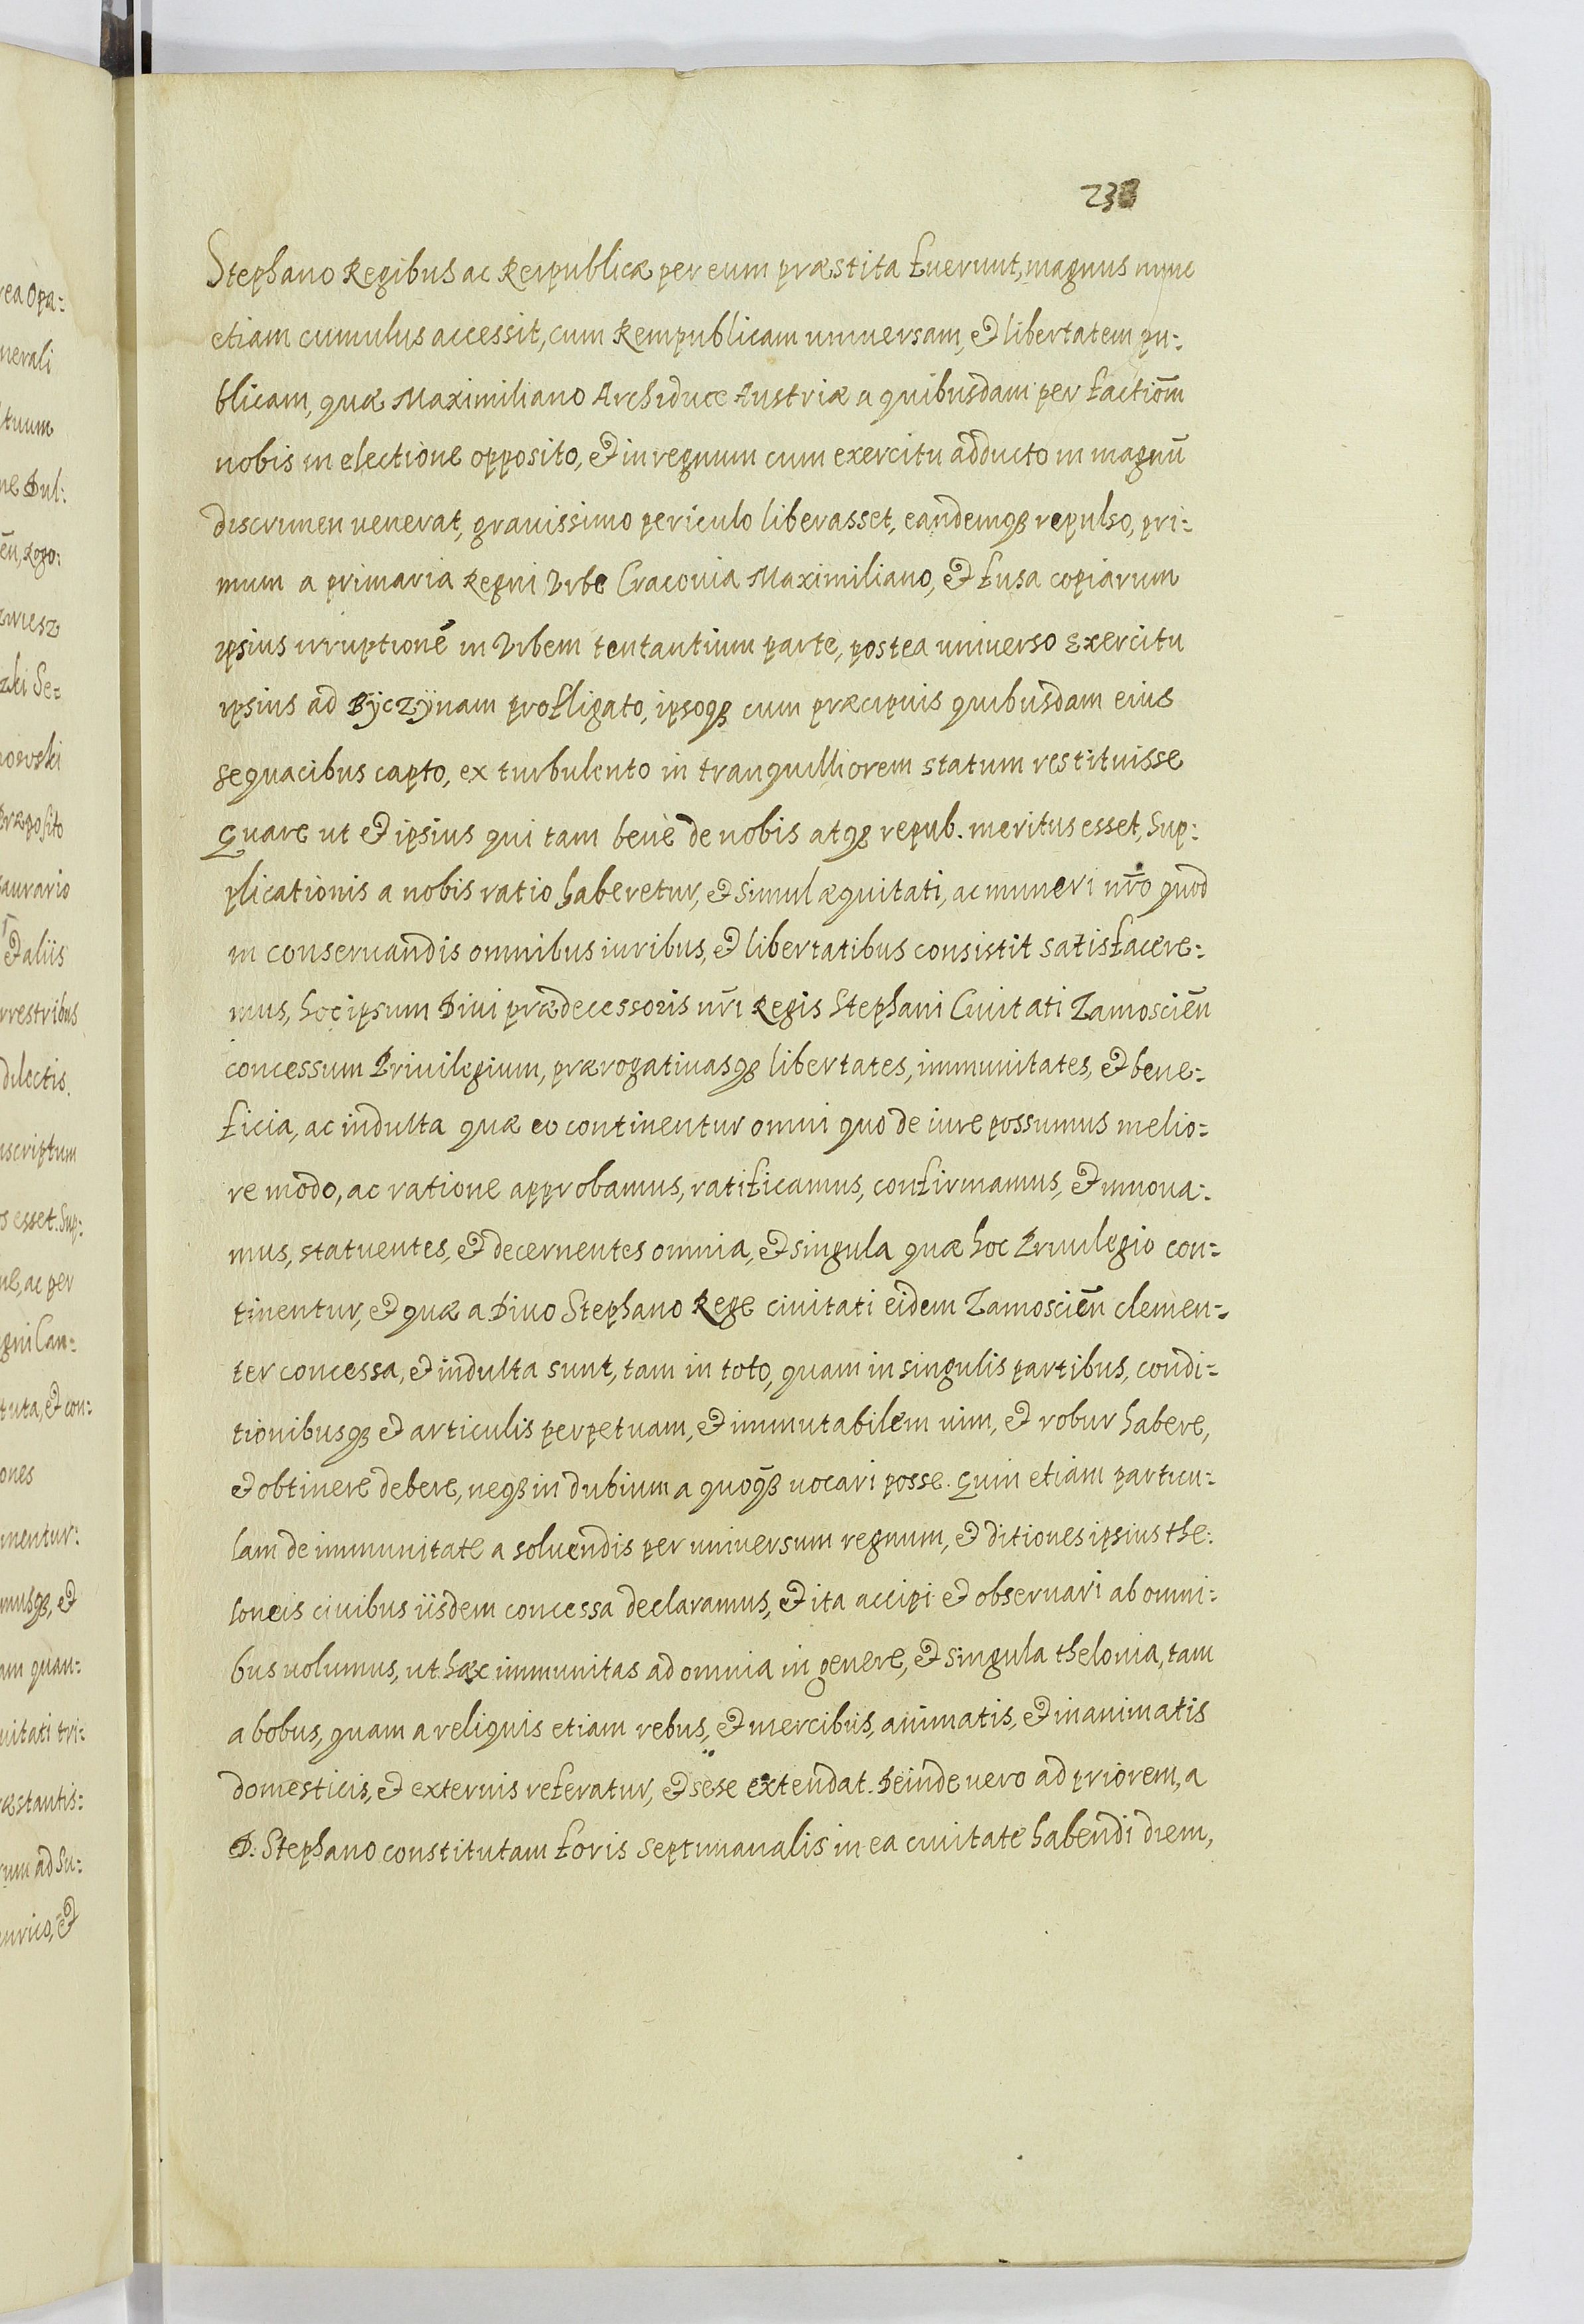 238
Stephano Regibus ac Reipublicæ per eum præstita fuerunt, magnus nunc
etiam cumulus accessit, cum Rempublicam universam, et libertatem pu:
blicam, quæ Maximiliano Archiduce Austriæ a quibusdam per factiōm
nobis in electione opposito, et in regnum cum exercitu adducto in magnū
discrimen uenerat, grauissimo periculo liberasset, eandemq3 repulso, pri:
mum a primaria Regni Vrbe Cracouia Maximiliano, et fusa copiarum
ipsius irruptionē in Vrbem tentantium parte, postea uniuerso exercitu
ipsius ad Byczÿnam profligato, ipsoq3 cum præcipuis quibusdam eius
sequacibus capto, ex turbulento in tranquilliorem statum restituisse
Quare ut et ipsius qui tam bene de nobis atq3 repub. meritus esset, Sup:
plicationis a nobis ratio haberetur, et simul æquitati, ac muneri nr̄o quod
in conseruandis omnibus iuribus, et libertatibus consistit satisfacere:
mus, hoc ipsum Diui prædecessoris nr̄i Regis Stephani Ciuitati Zamosciēn
concessum Priuilegium, prærogatiuasq3 libertates, immunitates, et bene:
ficia, ac indulta quæ eo continentur omni quo de iure possumus melio:
re modo, ac ratione approbamus, ratificamus, confirmamus, et innoua:
mus, statuentes, et decernentes omnia, et singula quæ hoc Priuilegio con:
tinentur, et quæ a Diuo Stephano Rege ciuitati eidem Zamosciēn clemen:
ter concessa, et indulta sunt, tam in toto, quam in singulis partibus, condi:
tionibusq3 et articulis perpetuam, et immutabilem uim, et robur habere,
et obtinere debere, neq3 in dubium a quoq̄3 uocari posse. Quin etiam particu:
lam de immunitate a soluendis per uniuersum regnum, et ditiones ipsius the:
loneis ciuibus iisdem concessa declaramus, et ita accipi et obseruari ab omni:
bus uolumus, ut hæc immunitas ad omnia in genere, et singula thelonia, tam
a bobus, quam a reliquis etiam rebus, et mercibus, animatis, et inanimatis
domesticis, et externis referatur, et sese extendat. Deinde uero ad priorem, a
D: Stephano constitutam foris septimanalis in ea ciuitate habendi diem,